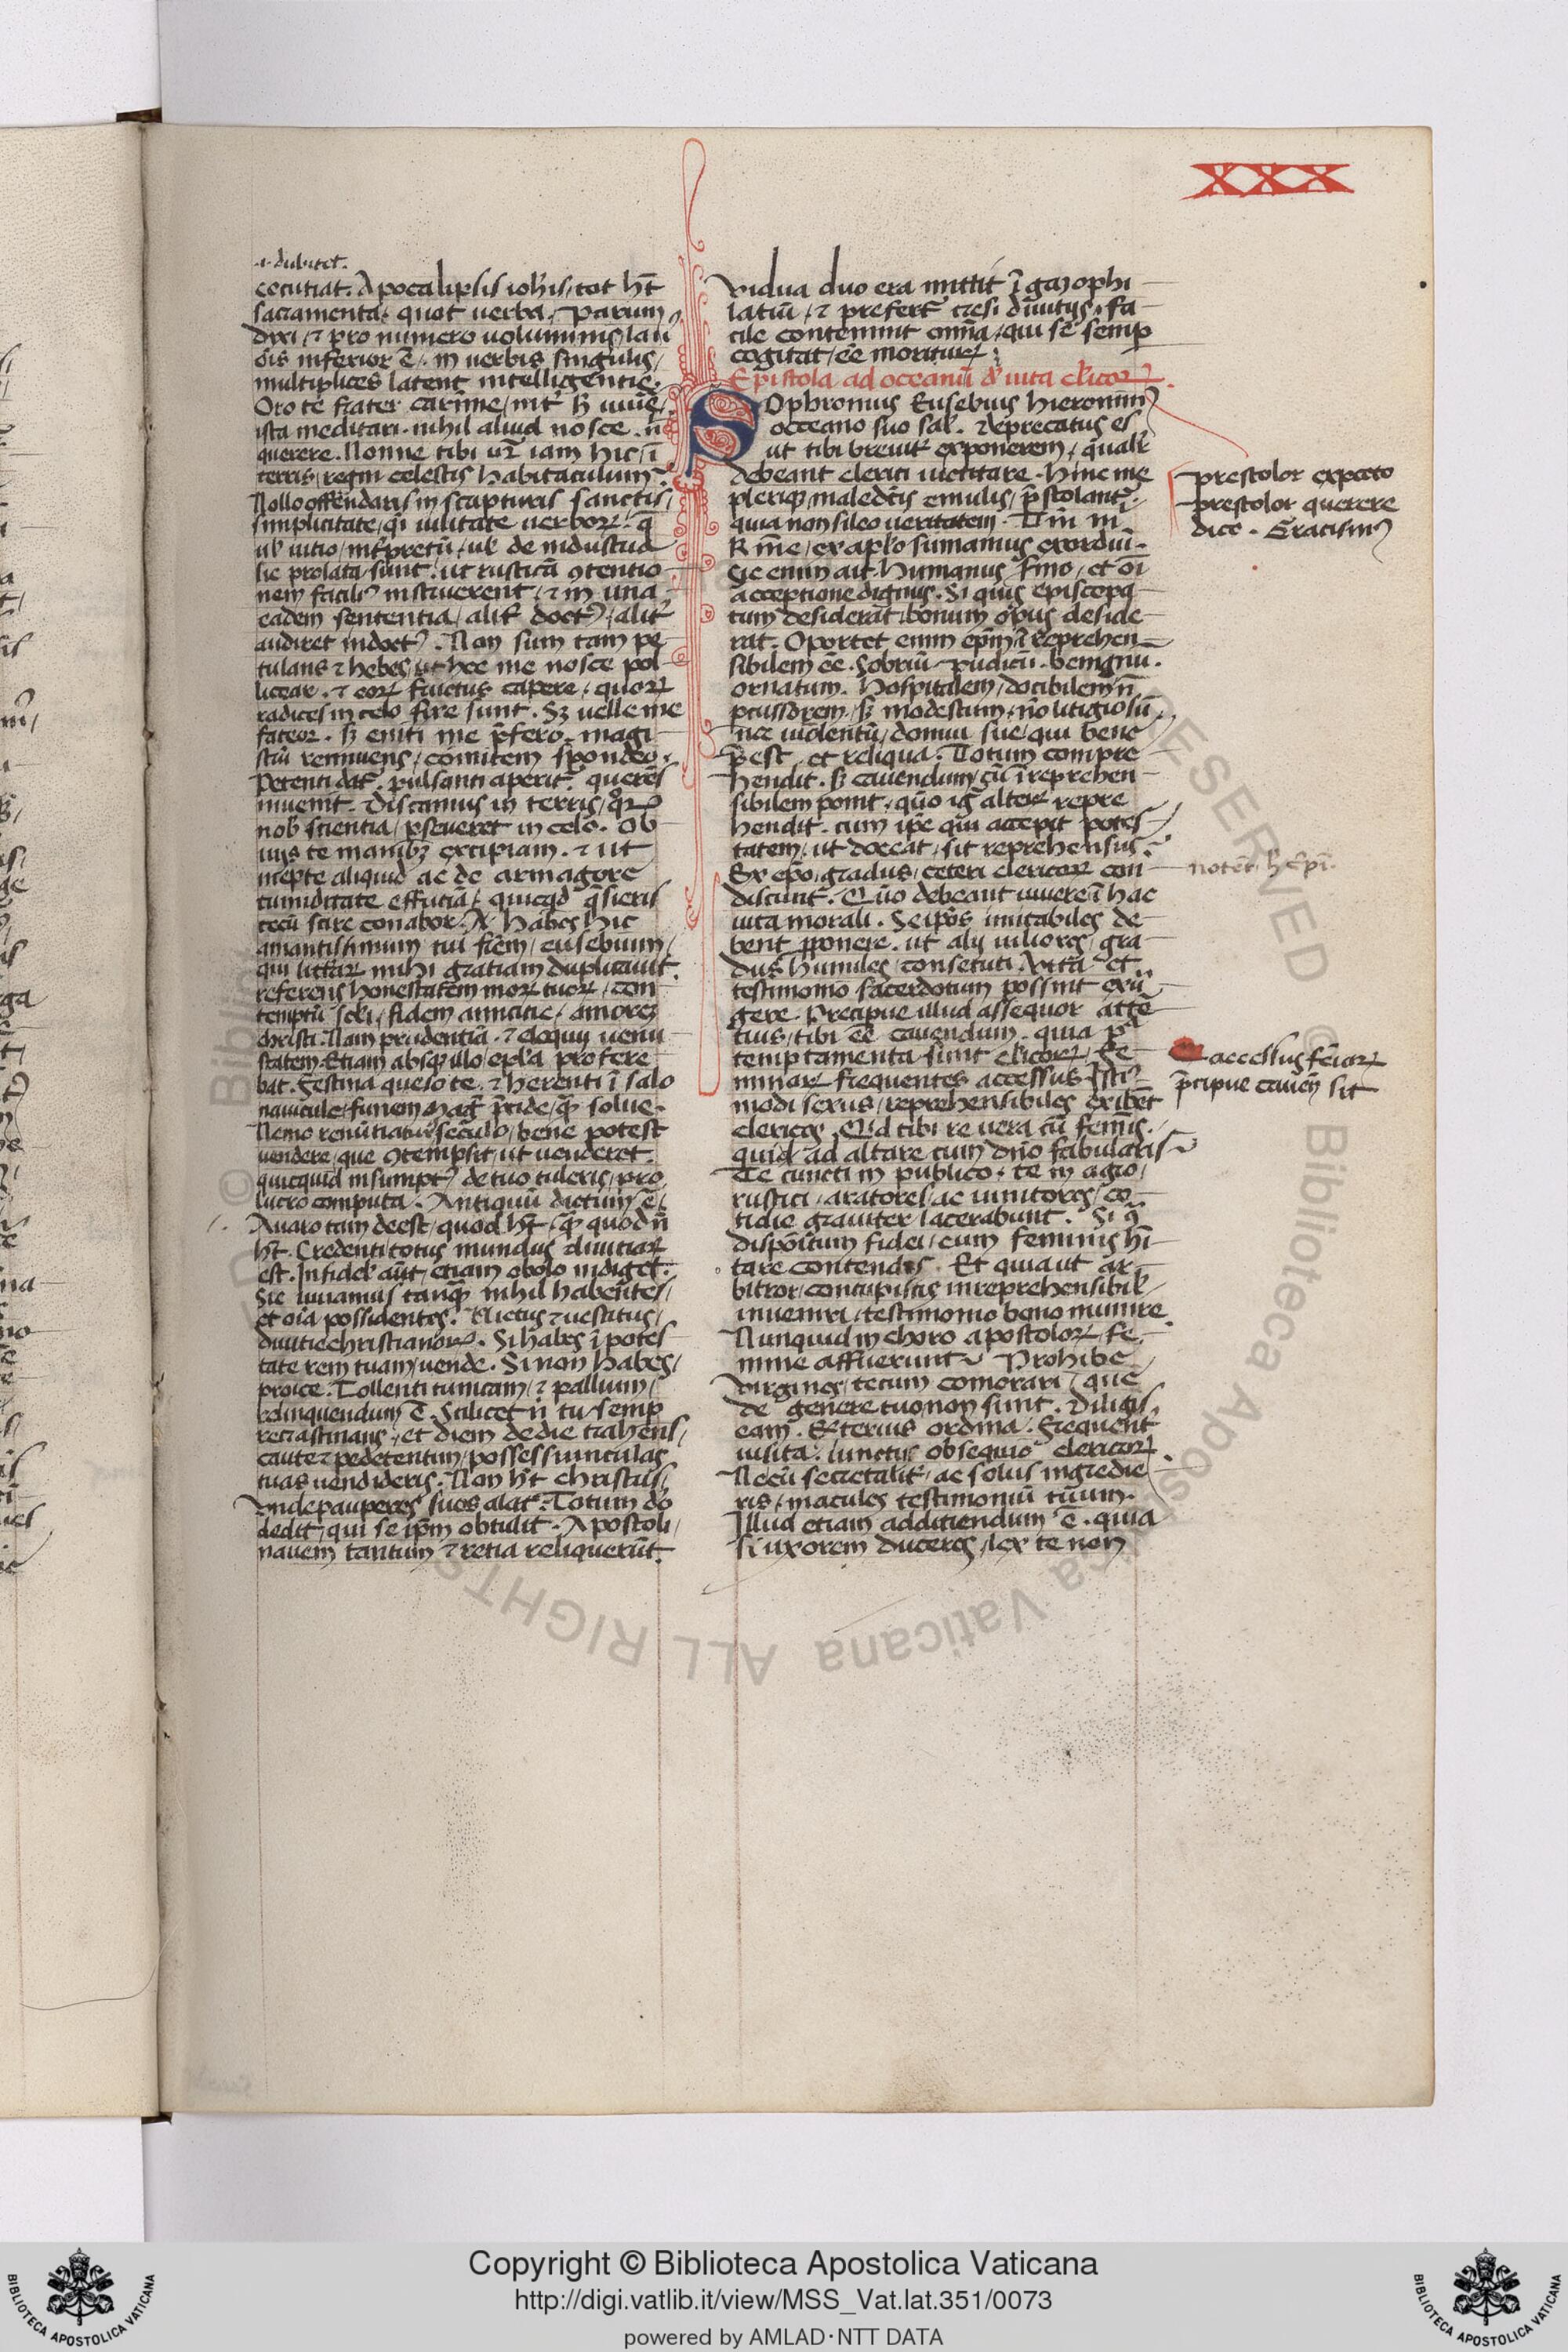 XXX
.i. dubitet.
cecutiat. Apocalipsis ioh̅is, tot h̅t
sacramenta, quot uerba. Parum
dixi, ⁊ pro numero uoluminis, lau
ois inferior e̅. in uerbis singulis,
multiplices latent intelligentie.
Oro te frater carime, int̅ hꝫ uiue̅,
ista meditari. nihil aliud nosce. n̅
querere. Nonne tibi ur̅ iam hic, i̅
terris, regni celestis habitaculum?
Nollo offendaris in scripturis sanctis,
simplicitate, q̅i uilitate uerboꝝ. q̅
ul̕ uitio, int̅pretu̅, ul̕ de industria
sic prolata sunt. ut rustica̅ ꝯtentio
nem facili᾽ instruerent, ⁊ in una
eadem sententia, alit̅ doct᾽, alit̅
audiret indoct᾽. Non sum tam pe
tulans ⁊ hebes, ut hec me nosce pol
licear. ⁊ eoꝝ fructus capere, quoꝝ
radices in celo fixe sunt. Sꝫ uelle me
fateor. sꝫ eniti me p̅fero. magi
stru̅ rennuens, comitem spondeo.
Petenti dat̅. pulsanti aperit̅. quere̅s
inuenit. Discamus in terris, qꝝ
nob̅ scientia, ꝑseueret in celo. Ob
uijs te manibꝫ excipiam. ⁊ ut
inepte aliquid ac de armagore
tumiditate effutia̅, quicq̅d q̅sieris
tecu̅ scire conabor. Habes hic
amantissimum tui fr̅em, eusebium,
qui litt̅aꝝ mihi gratiam duplicauit.
referens honestatem moꝝ tuoꝝ, con
temptu̅ sc̅li, fidem amicitie, amoreꝫ
christi. Nam prudentia̅. ⁊ eloquij uenu
statem. Etiam absqꝫ illo, epl̅a profere
bat. Festina queso te. ⁊ herenti i̅ salo
nauicule, funem magꝭ p̅cide, qꝫ solue.
Nemo renu̅tiatur᾽ seculo, bene potest
uendere, que ꝯtempsit, ut uenderet.
quicquid insumpt᾽ de tuo tuleris, pro
lucro computa. Antiquu̅ dictum e̅,
Auaro tam deest, quod h̅t, qꝫ quod n̅
h̅t. Credenti totus mundus diuitiaꝝ
est. Infidel̕ aut̅, etiam obolo indiget.
Sic uiuamus tanqꝫ nihil habentes,
et oi̅a possidentes. Uictus ⁊ uestitus,
diuitie christianoꝝ. Si habes i̅ potes
tate rem tuam, uende. Si non habes,
proice. Tollenti tunicam, ⁊ pallium,
relinquendum e̅. Scilicet n̅ tu semp
recrastinans, et diem de die trahens,
caute ⁊ pedetentim, possessiunculas
tuas uendideris. Non h̅t christus,
Unde pauperes suos alat. Totum do̅
dedit, qui se ip̅m obtulit. Apostoli,
nauem tantum ⁊ retia reliqueru̅t.
vidua duo era mittit i̅ gazophi
latiu̅, ⁊ prefert᾽ cresi diuitijs. Fa
cile contemnit omn̅ia, qui se semp
cogitat, e̅e morituꝝ.
Epistola ad oceanu̅ d̕ uita cl̕icoꝝ.
SOphronius Eusebius hieronim᾽
occeano suo sal̕. Deprecatus es
ut tibi breuit̅ exponerem, qual̕r
debeant clerici uictitare. Hinc me
pleriqꝫ maledictis emulis, p̅stolant᾽.
quia non sileo ueritatem. Tn̅ in
R m̅e, ex ap̅lo sumamus exordiu̅.
Sic enim ait. Humanus sermo, et oi̅
acceptione dignus. Si quis episcopa
tum desiderat, bonum opus deside
rat. Oportet enim ep̅m, i̅reprehen
sibilem e̅e. Sobriu̅, pudicu̅. benignu̅.
ornatum. hospitalem, docibilem, n̅
ꝑcussorem, sꝫ modestum, no̅ litigiosu̅,
nec uiolentu̅, domui sue, qui bene
p̅est, et reliqua. Totum compre
hendit. sꝫ cauendum, cu̅ i̅reprehen
sibilem ponit, quo̅ ig̅ alteꝝ repre
hendit. cum ip̅e qui accepit potes
tatem, ut doceat, sit reprehensus.
Ex ep̅o, gradus, ceteri clericoꝝ con
discunt. Quo̅ debeant uiuere i̅ hac
uita morali. Se ip̅os imitabiles de
bent ꝓponere. ut alij uiliores, gra
dus humiles, consecuti. Uita et
testimonio sacerdotum possint exu̅
gere. Precipue illud assequor atte̅
tius, tibi e̅e cauendum. quia p̅a
temptamenta sunt cl̕icoꝝ, Fe
minaꝝ frequentes accessus. Isti᾽
modi sexus, reprehensibiles exibet
clericos. Qid tibi re uera cu̅ femi̅s.
quid ad altare cum dn̅o fabularis.
Te cuncti in publico. te in agro,
rustici, aratores, ac uinitores, co
tidie grauiter lacerabunt. Si ꝯ̅
dispo̅itum fidei, cum feminis h̅i
tare contendis. Et quia ut ar
bitror, concupistis inreprehensibil̕
inueniri, testimonio bono munire.
Nunquid in choro apostoloꝝ, fe
mine affuerunt. Prohibe
virgines, tecum comorari, que
de genere tuo non sunt. Diligis,
eam. Exterius ordina. Frequent̅
uisita. iunctus obsequio clericoꝝ.
Ne cu̅ secretalit̅, ac solus ingredie
ris, macules testimoniu̅ tuum.
Illud etiam adiiciendum e̅. quia
si uxorem duceres, lex te non
prestolor expecto
prestolor querere
dico. Gracism᾽
note̅t h̕ e̅pi̅.
accessus fe̅iaꝝ
p̅cipue caue̅n̅ sit
Copyright © Biblioteca Apostolica Vaticana
http://digi.vatlib.it/view/MSS_Vat.lat.351/0073
powered by AMLAD·NTT DATA
BIBLIOTECA APOSTOLICA VATICANA
BIBLIOTECA APOSTOLICA VATICANA